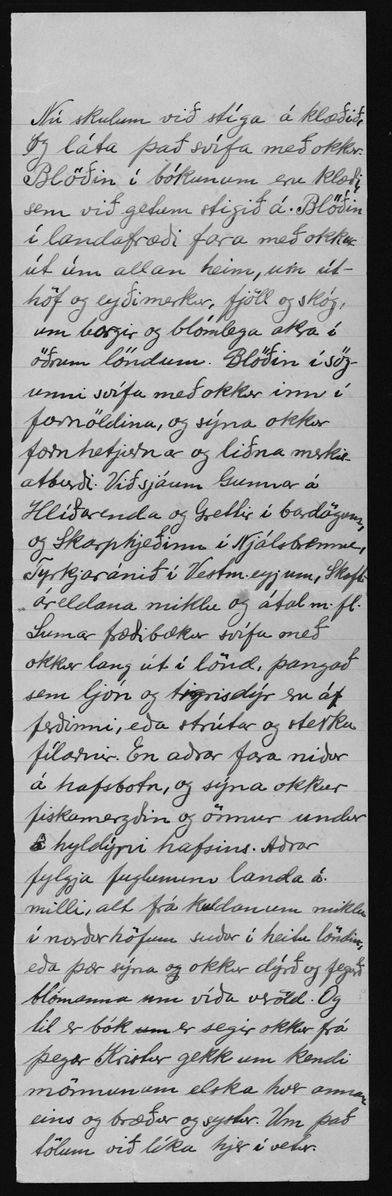 Nú skulum við stíga á klæðið,
Og láta það svífa með okkur.
Blöðin í bókunum eru klæði,
sem við getum stigið á. Blöðin
í landafræði fara með okkur
út úm allan heim, um út-
höf og eyðimerkur, fjöll og skóg,
um borgir og blómlega akra í
öðrum löndum. Blöðin í sög-
unni svífa með okkur inn í
fornöldina, og sýna okkur
fornhetjurnar og liðna merkis-
atburði. Við sjáum Gunnar á
Hlíðarenda og Grettir í bardögum,
og Skarphjeðinn í Njálsbrennu,
Tyrkjaránið í Vestm.eyjum, Skaft-
áreldana miklu og átal m. fl.
Sumar fræðibækur svífa með
okkur lang út í lönd, þangað
sem ljón og tigrisdýr eru á
ferðinni, eða strútar og sterku
fílarnir. En aðrar fara niður
á hafsbotn, og sýna okkur
fiskamergðin og önnur undur
í hyldýpi hafsins. Aðrar
fylgja fuglunum landa á
milli, alt frá kuldanum miklu
í norðurhöfum suður í heitu löndin,
eða þær sýna okkur dýrð og fegurð
blómanna um víða veröld. Og
til er bók er segir okkur frá
þegar Kristur gekk um kendi
mönnunum elska hver annan
eins og bræður og systur. Um það
tölum við líka hjer í vetur.